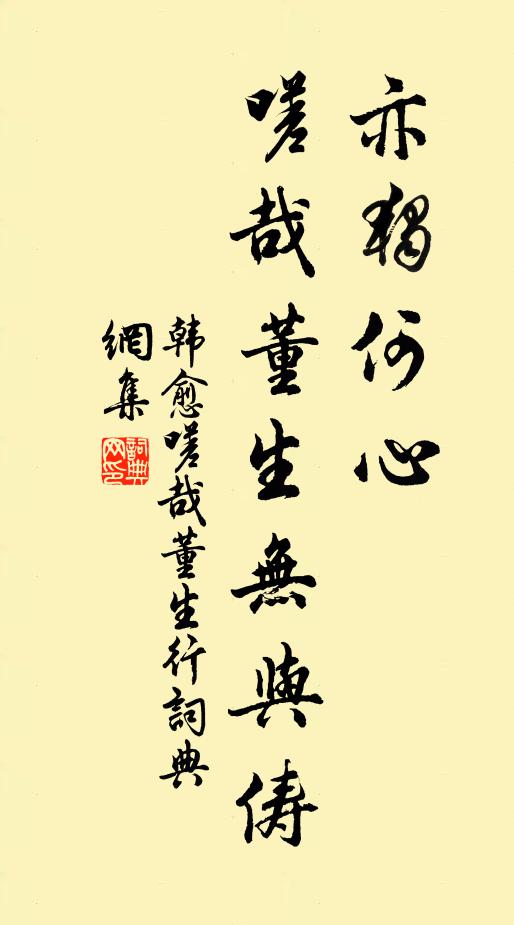 亦獨何心
嗟哉董生無與儔
韓愈嗟哉董生行詞典
網集
詞典
网印